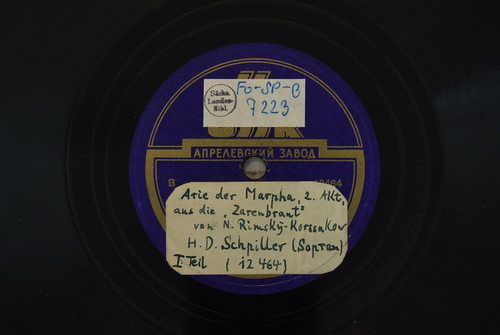 Sächs.
Landes-
Bibl.
FO-SP-B
7223
АПРЕЛЕВСКИЙ ЗАВОД
В 12464
Arie der Marpha, 2. Akt,
aus die „Zarenbraut"
von N. Rimsky-Korssakow
H. D. Schpiller (Sopran)
I. Teil (12464)